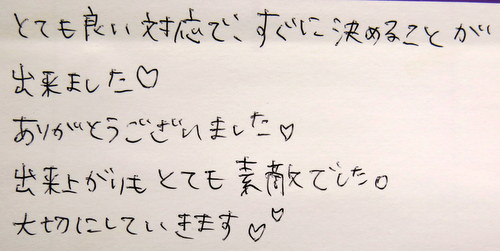 とても良い対応で、すぐに決めることが
出来ました♡
ありがとうございました♡
出来上がりもとても素敵でした。
大切にしていきます♡♡